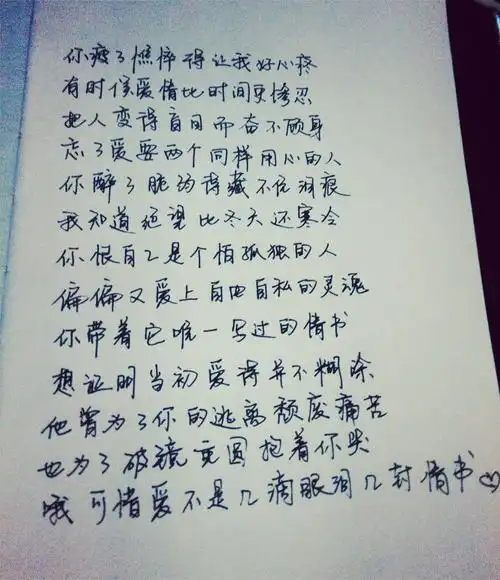 你瘦了憔悴得让我好心疼
有时候爱情比时间更惨忍
把人变得盲目而奋不顾身
忘了爱要两个同样用心的人
你醉了脆弱得藏不住泪痕
我知道绝望比冬天还寒冷
你恨自己是个怕孤独的人
偏偏又爱上自由自私的灵魂
你带着它唯一写过的情书
想证明当初爱得并不糊涂
他曾为了你的逃离颓废痛苦
也为了破镜重圆抱着你哭
哦可惜爱不是几滴眼泪几封情书♡